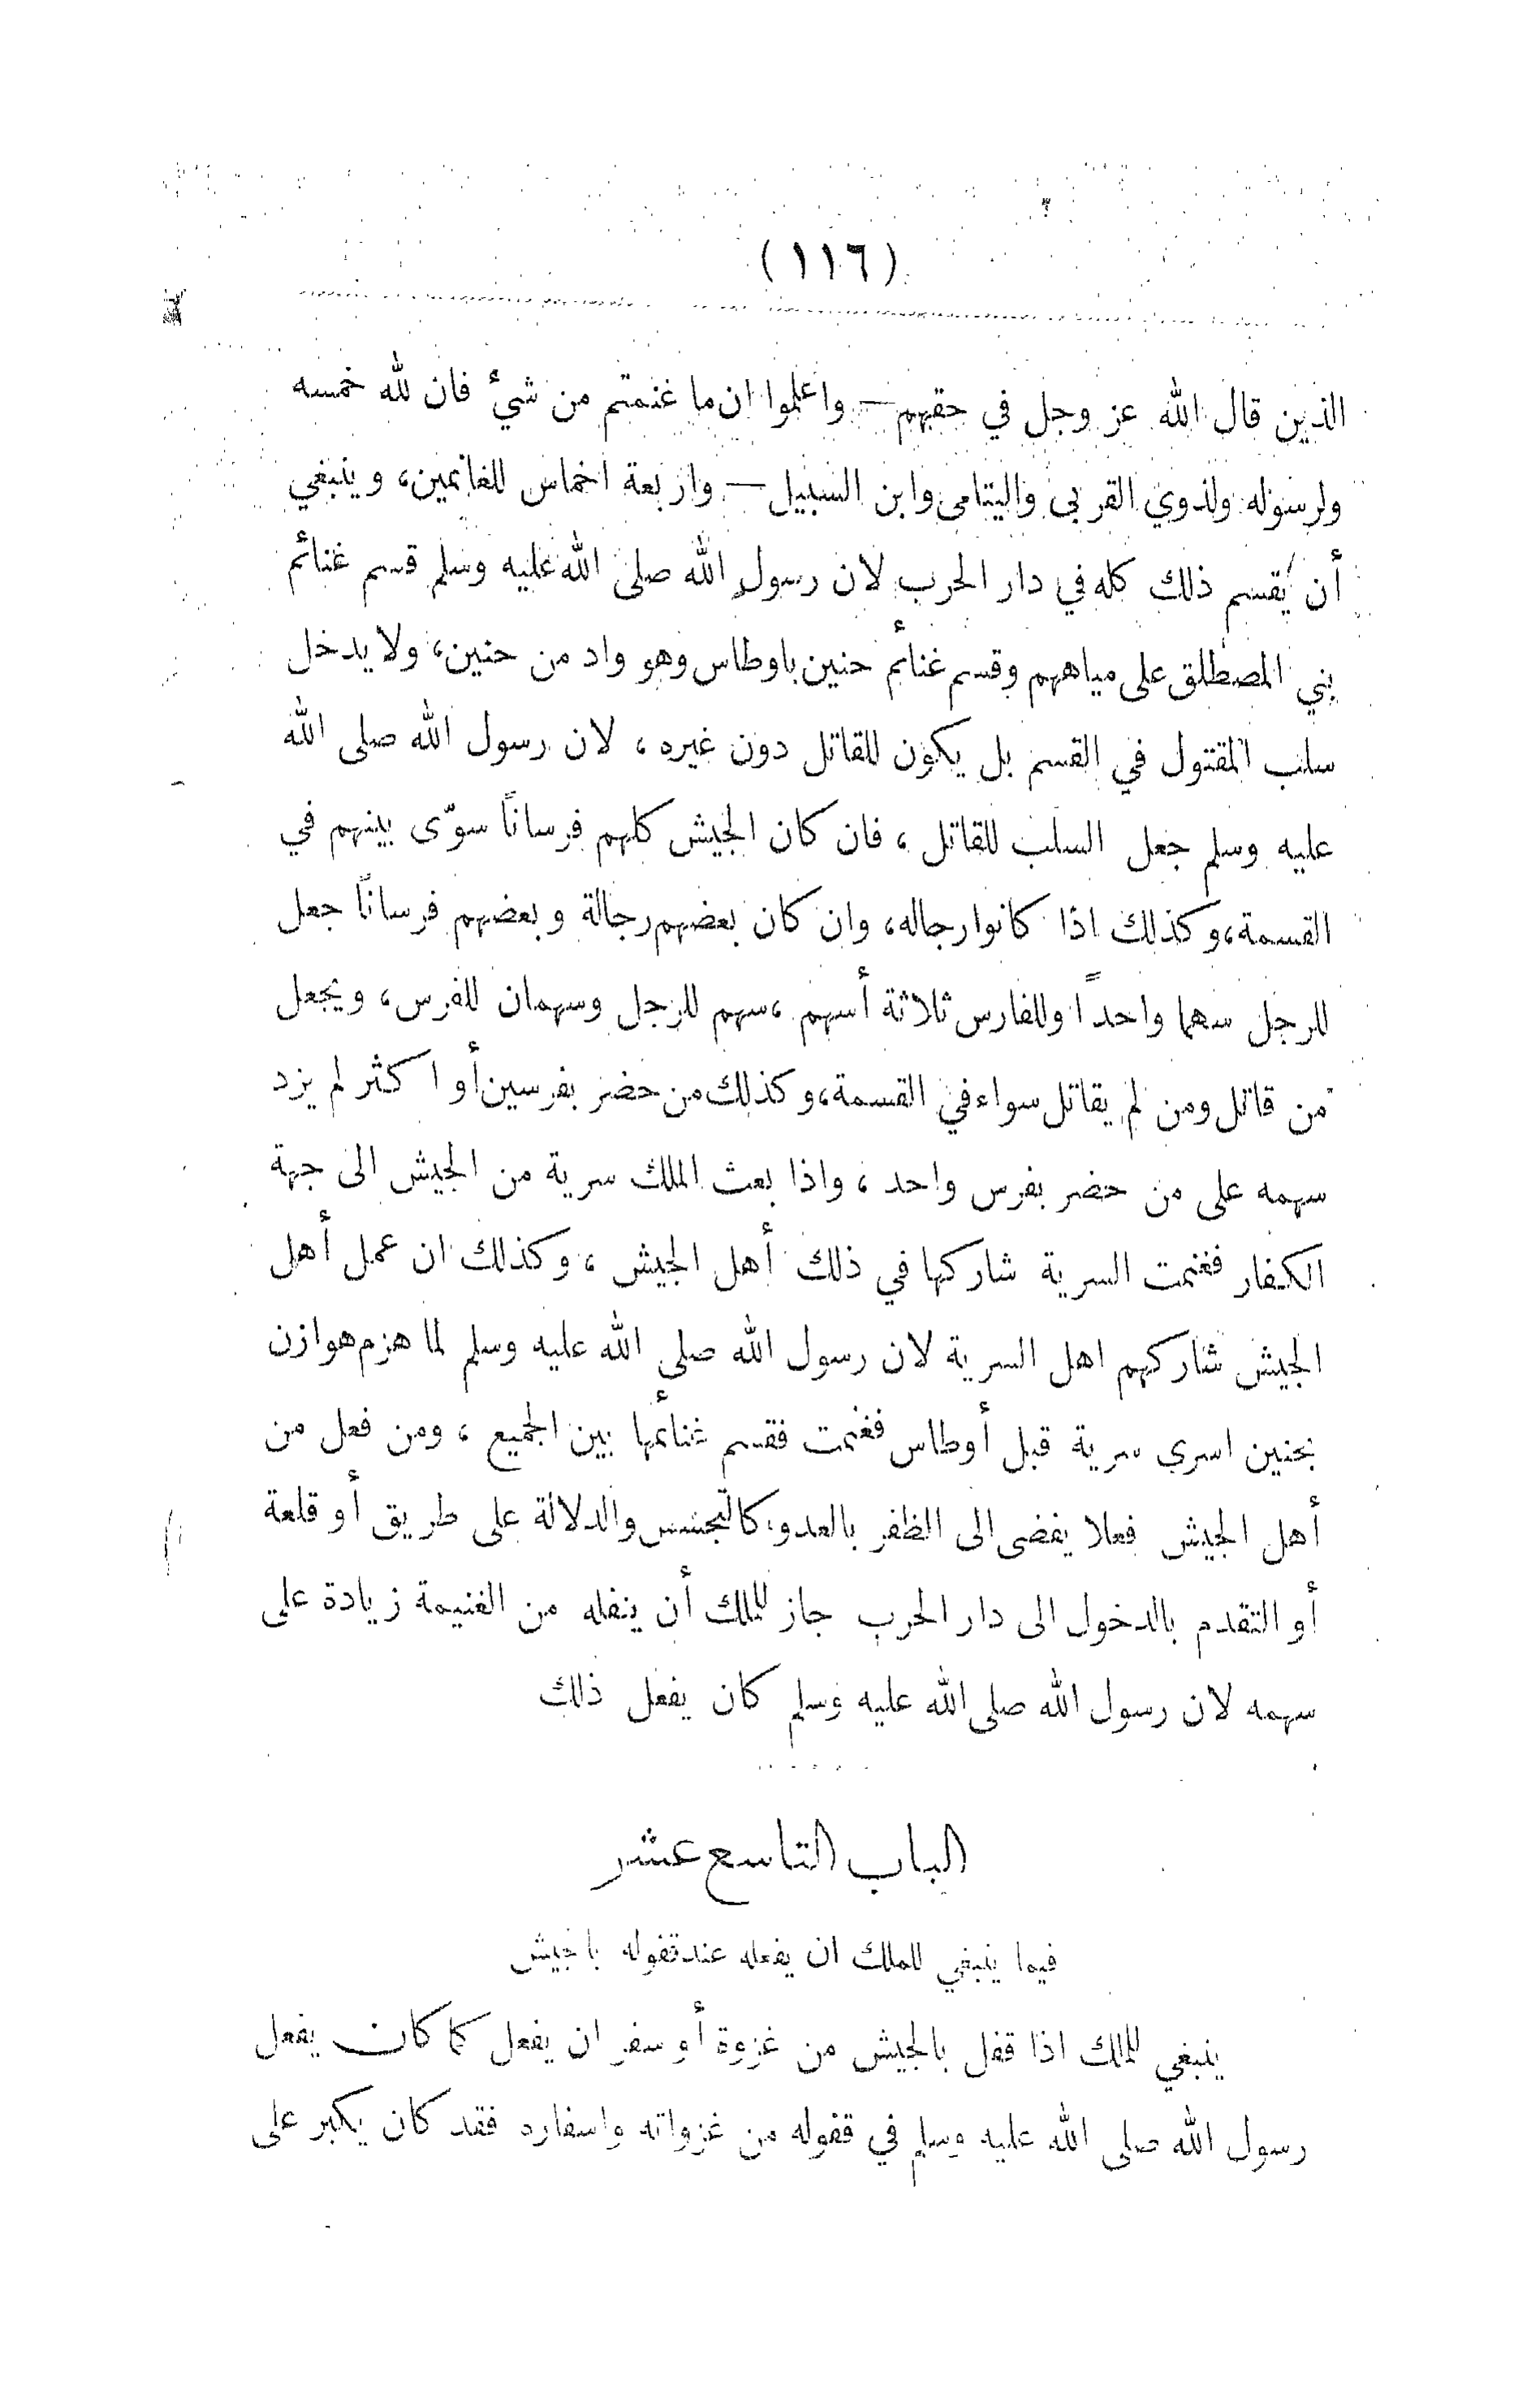 (١١٦)
الذين قال الله عز وجل في حقهم — واعلموا ان ما غنمتم من شئ فان لله خمسه
ولرسوله ولذوي القربى واليتامى وابن السبيل — واربعة اخماس للغانمين، وينبغي
أن يُقسم ذلك كله في دار الحرب لان رسول الله صلى الله عليه وسلم قسم غنائم
بني المصطلق على مياههم وقسم غنائم حنين باوطاس وهو واد من حنين، ولا يدخل
سلب المقتول في القسم بل يكون للقاتل دون غيره ، لان رسول الله صلى الله
عليه وسلم جعل السلب للقاتل ، فان كان الجيش كلهم فرساناً سوّى بينهم في
القسمة، وكذلك اذا كانوا رجاله، وان كان بعضهم رجالة وبعضهم فرساناً جعل
للرجل سهما واحداً وللفارس ثلاثة أسهم ، سهم للرجل وسهمان للفرس، ويجعل
من قاتل ومن لم يقاتل سواء في القسمة، وكذلك من حضر بفرسين أو اكثر لم يزد
سهمه على من حضر بفرس واحد ، واذا بعث الملك سرية من الجيش الى جهة
الكفار فغنمت السرية شاركها في ذلك أهل الجيش ، وكذلك ان عمل أهل
الجيش شاركهم اهل السرية لان رسول الله صلى الله عليه وسلم لما هزم هوازن
بحنين اسرى سرية قبل أوطاس فغنمت فقسم غنائمها بين الجميع ، ومن فعل من
أهل الجيش فعلا يفضى الى الظفر بالعدو، كالتجسس والدلالة على طريق أو قلعة
أو التقدم بالدخول الى دار الحرب جاز للملك أن ينفله من الغنيمة زيادة على
سهمه لان رسول الله صلى الله عليه وسلم كان يفعل ذلك
الباب التاسع عشر
فيما ينبغي للملك ان يفعله عند قفوله بالجيش
ينبغي للملك اذا قفل بالجيش من غزوة أو سفر ان يفعل كما كان يفعل
رسول الله صلى الله عليه وسلم في قفوله من غزواته واسفاره فقد كان يكبر على